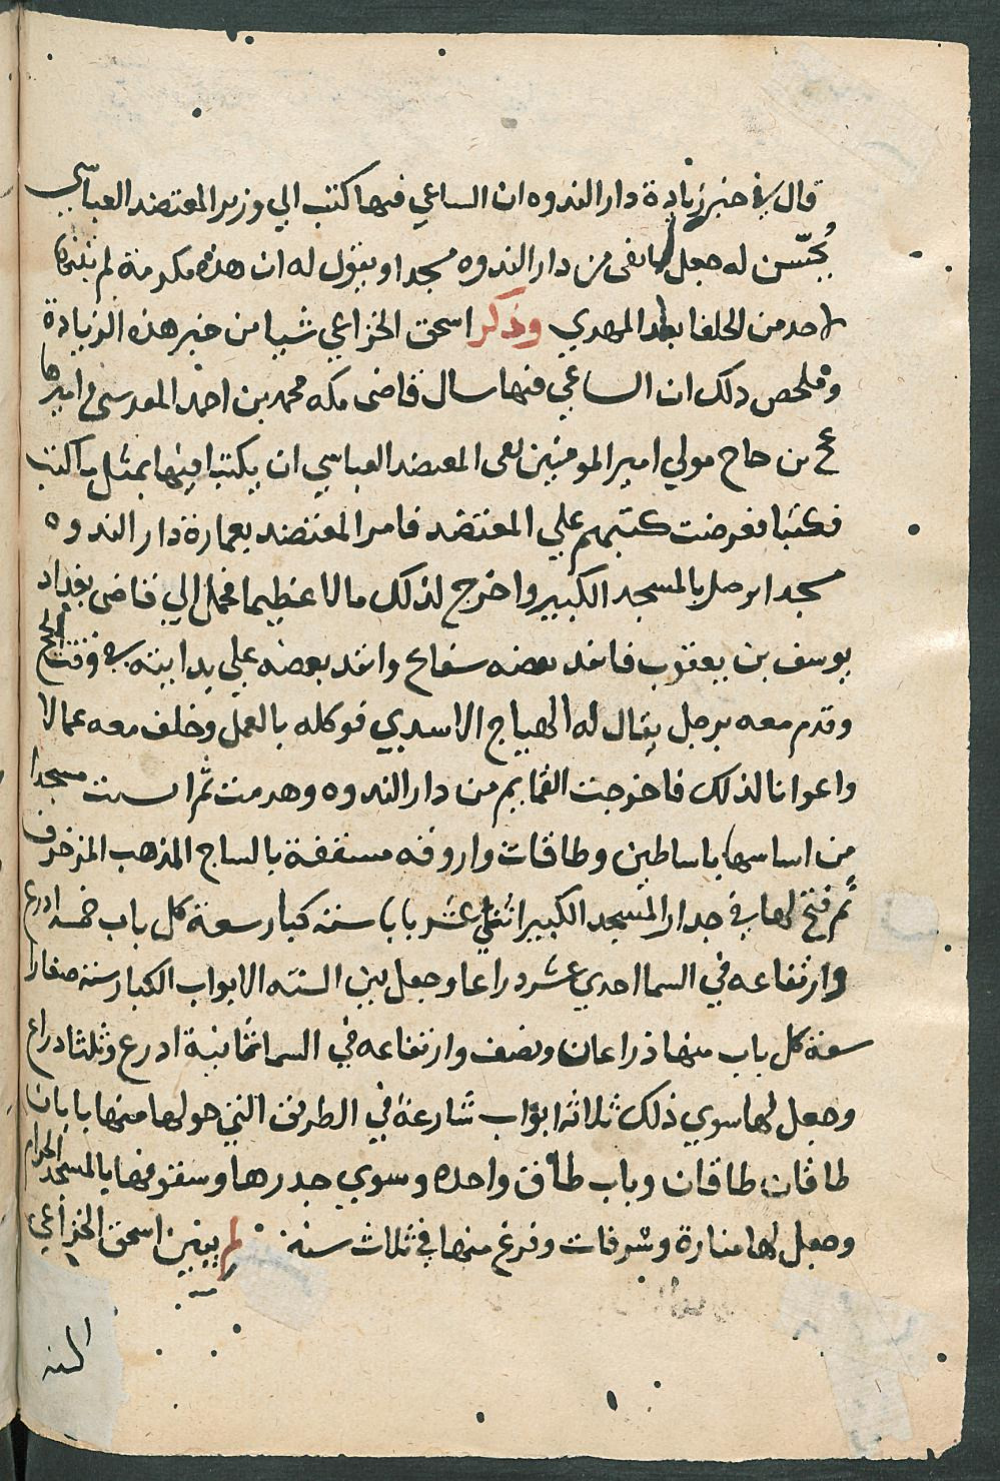 قال في خبر زيادة دار الندوه ان الساعي فيها كتب الي وزير المعتضد العباسي
يُحسّن له جعل ما بقى من دار الندوه مسجدا ويقول له ان هذه مكرمة لم تتهيا
لاحد من الخلفا بعد المهدي وذكر اسحق الخزاعي شيا من خبر هذه الزيادة
وملخص ذلك ان الساعي فيها سال قاضى مكه محمد بن احمد المقدسى وامیرها
عج بن حاج مولي امير المومنين يعنى المعتضد العباسي ان يكتبا فيها بمثل ما كتب
فكتبا فعرضت كتبهم علي المعتضد فامر المعتضد بعمارة دار الندوه
مسجدا يوصل بالمسجد الكبير واخرج لذلك مالا عظيما فحمل الي قاضى بغداد
يوسف بن يعقوب فانفد بعضه سفاتج وانفد بعضه علي يد ابنه في وقت الحج
وقدم معه برجل يقال له ابو الهياج الاسدي فوكله بالعمل وخلف معه عمالا
واعوانا لذلك فاخرجت القمايم من دار الندوه وهدمت ثم اسست مسجدا
من اساسها باساطين وطاقات واروقه مسقفة بالساج المذهب المزخرف
ثم فتح لها في جدار المسجد الكبير اثني عشر بابا ستة كبار سعة كل باب خمسه ادرع
وارتفاعه في السما احدي عشر دراعا وجعل بين الستة الابواب الكبار ستة صغارا
سعة كل باب منها ذراعان ونصف وارتفاعه في السما ثمانية ادرع وثلثا دراع
وجعل لها سوي ذلك ثلاثة ابواب شارعة في الطريق التي حولها منها بابان
طاقان طاقان وباب طاق واحده وسوي جدرها وسقوفها بالمسجد الحرام
وجعل لها منارة وشرفات وفرغ منها في ثلاث سنه لم يبين اسحق الخزاعي
السنه